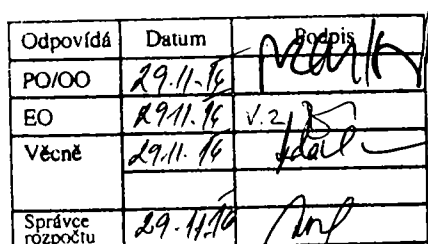 Odpovídá Datum Podpis
PO/OO 29.11.16
EO 29.11.16 V.z.
Věcně 29.11.16
Správce rozpočtu 29.11.16